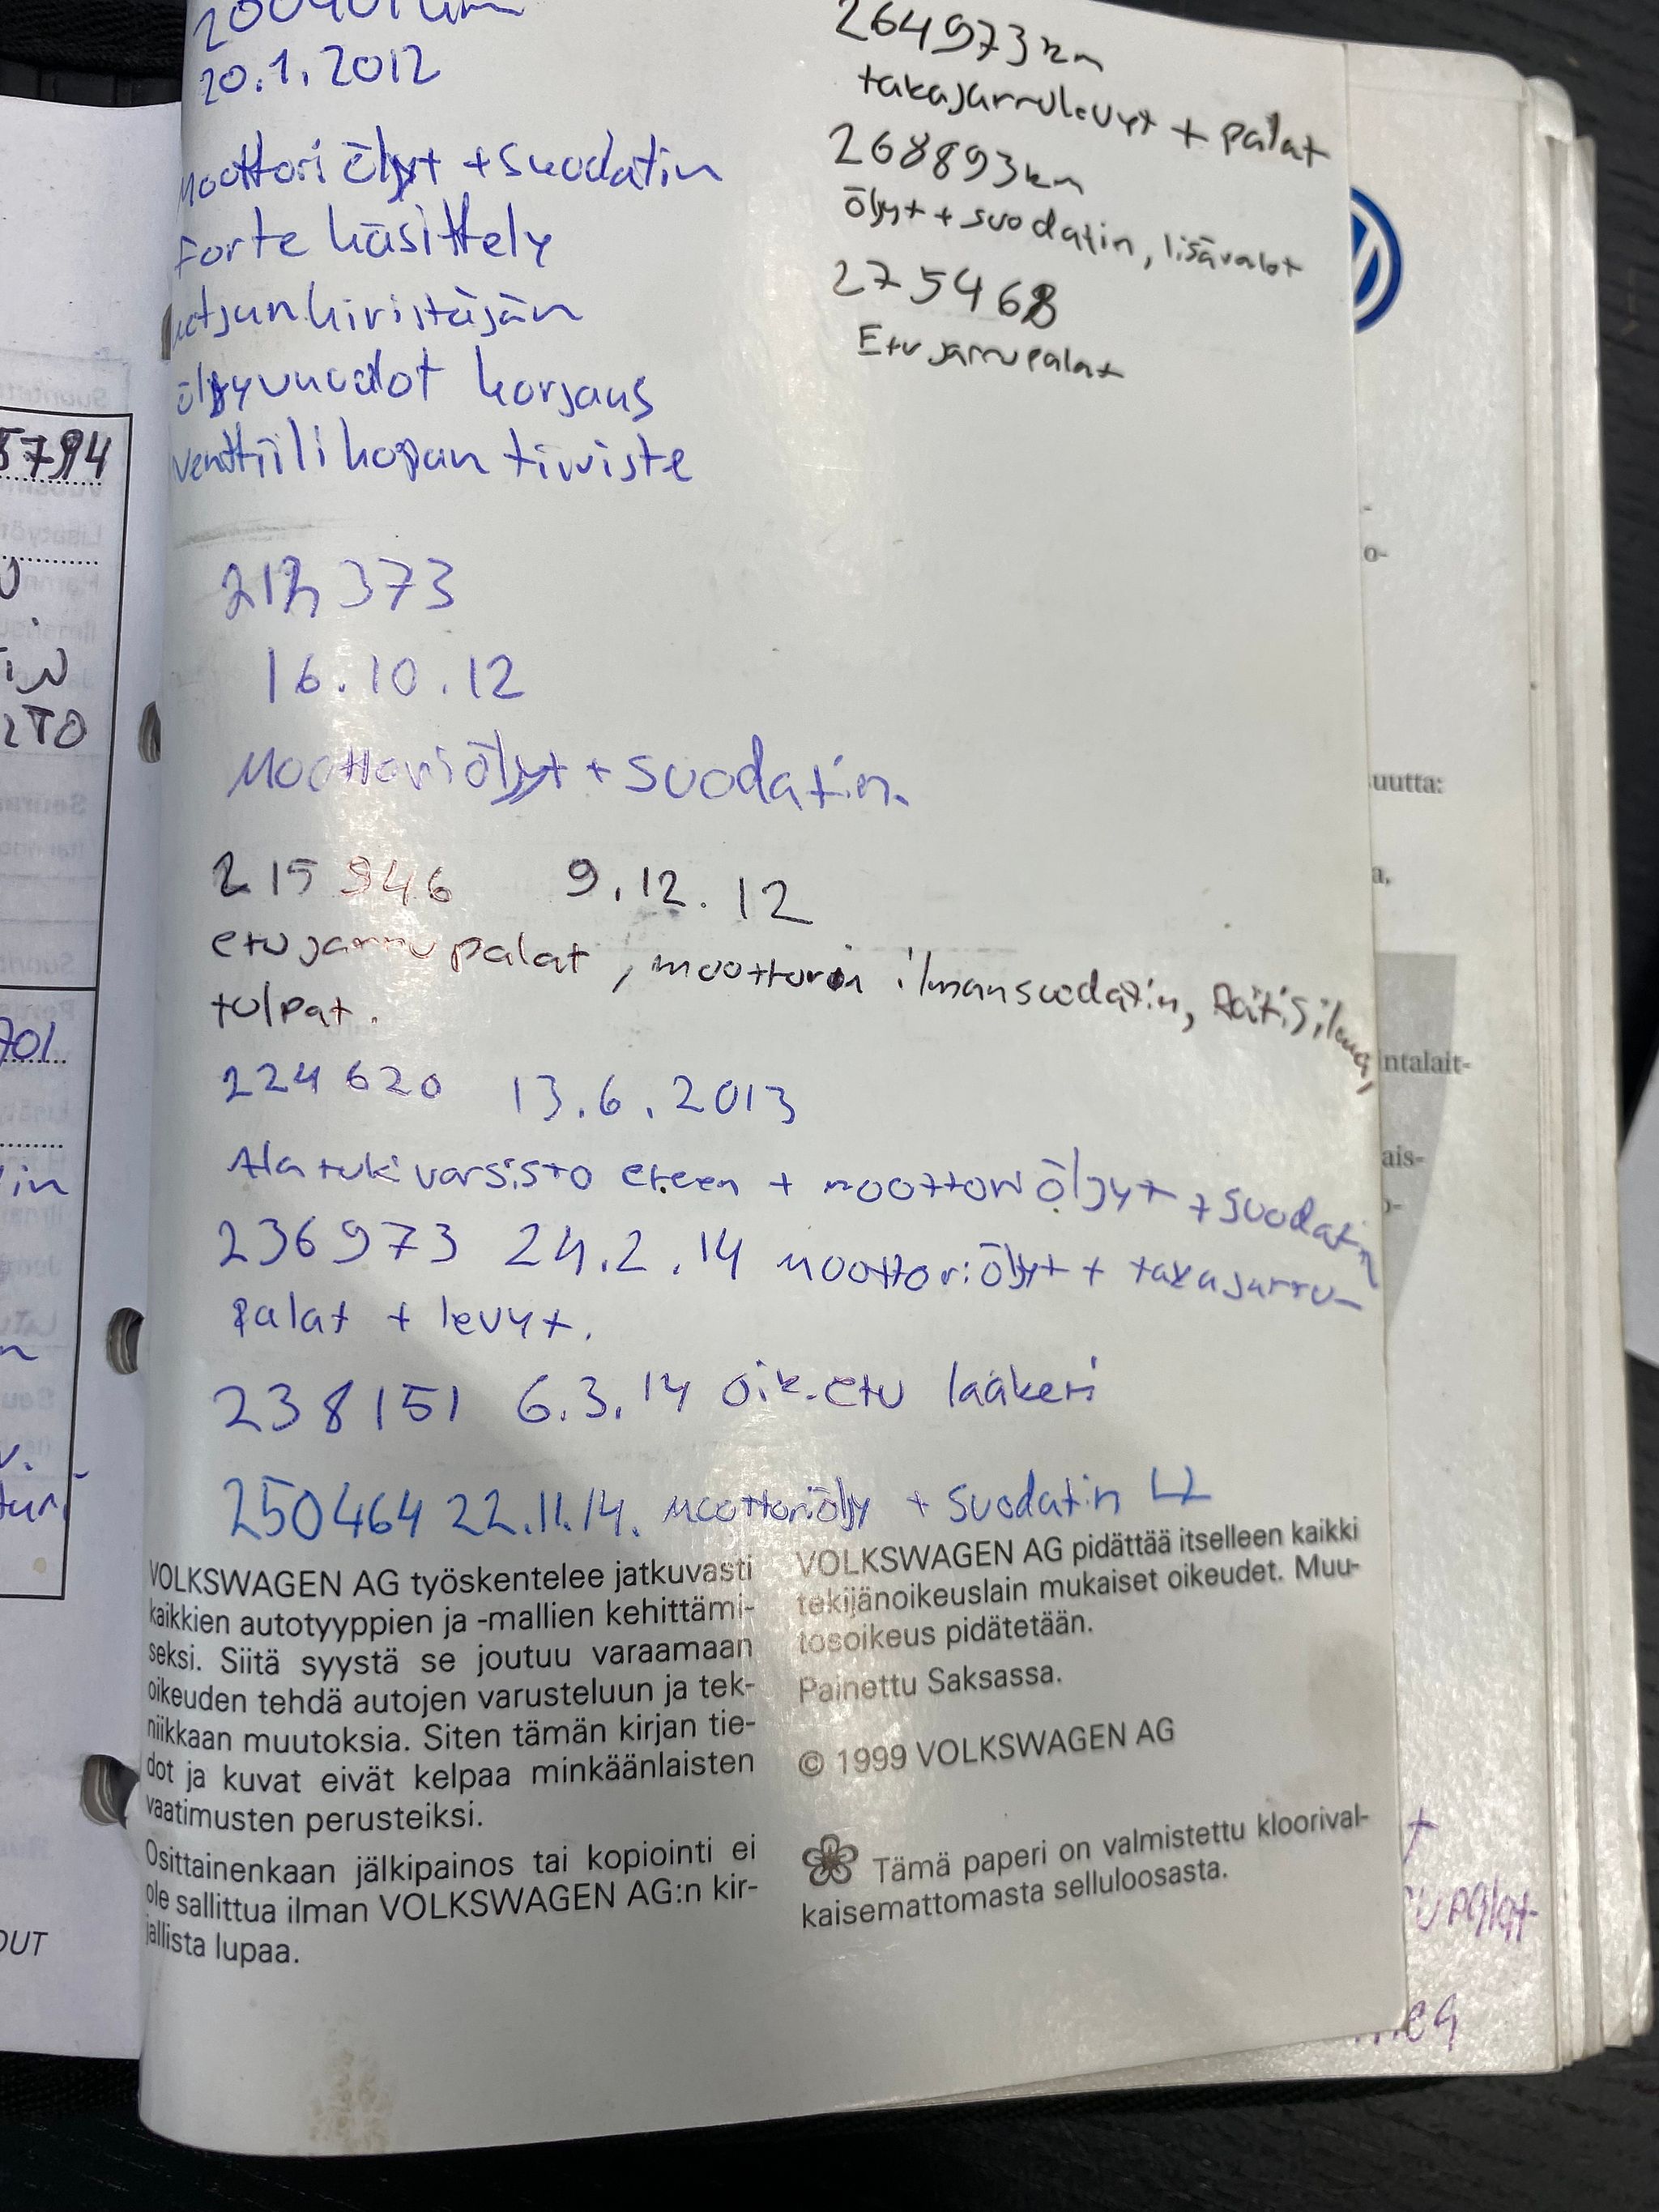 20.1.2012
Moottori öljyt + suodatin
Forte käsittely
ketjunkiristäjän
öljyvuodot korjaus
Venttiilikopan tiiviste
212373
16.10.12
Moottoriöljyt + suodatin.
215946 9.12.12
etujarrupalat, moottorin ilmansuodatin, Raitisilma,
tulpat.
224620 13.6.2013
Alatukivarsisto eteen + moottoriöljyt + suodatin
236973 24.2.14 moottoriöljyt + takajarru-
palat + levyt.
238151 6.3.14 oik.etu laakeri
250464 22.11.14. moottoriöljy + suodatin
264973km
takajarrulevyt + palat
268893km
öljyt + suodatin, lisävalot
275468
Etujarrupalat
VOLKSWAGEN AG työskentelee jatkuvasti
kaikkien autotyyppien ja -mallien kehittämi-
seksi. Siitä syystä se joutuu varaamaan
oikeuden tehdä autojen varusteluun ja tek-
niikkaan muutoksia. Siten tämän kirjan tie-
dot ja kuvat eivät kelpaa minkäänlaisten
vaatimusten perusteiksi.
Osittainenkaan jälkipainos tai kopiointi ei
ole sallittua ilman VOLKSWAGEN AG:n kir-
jallista lupaa.
VOLKSWAGEN AG pidättää itselleen kaikki
tekijänoikeuslain mukaiset oikeudet. Muu-
tosoikeus pidätetään.
Painettu Saksassa.
© 1999 VOLKSWAGEN AG
Tämä paperi on valmistettu kloorival-
kaisemattomasta selluloosasta.
5794
701
uutta:
ntalait-
ais-